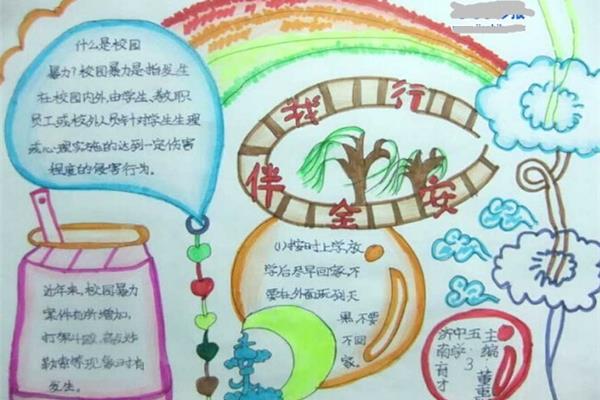 什么是校园
暴力?校园暴力是指发生
在校园内外,由学生、教职
员工或校外人员针对学生生理
或心理实施的达到一定伤害
程度的侵害行为。
安全伴我行
(1)按时上学,放
学后尽早回家,不
要在外面玩到天
黑不要
不回
家。
近年来,校园暴力
案件有所增加,
打架斗殴、
勒索等现象时有
发生。
主编:董
五·3
中学
济南育才
报